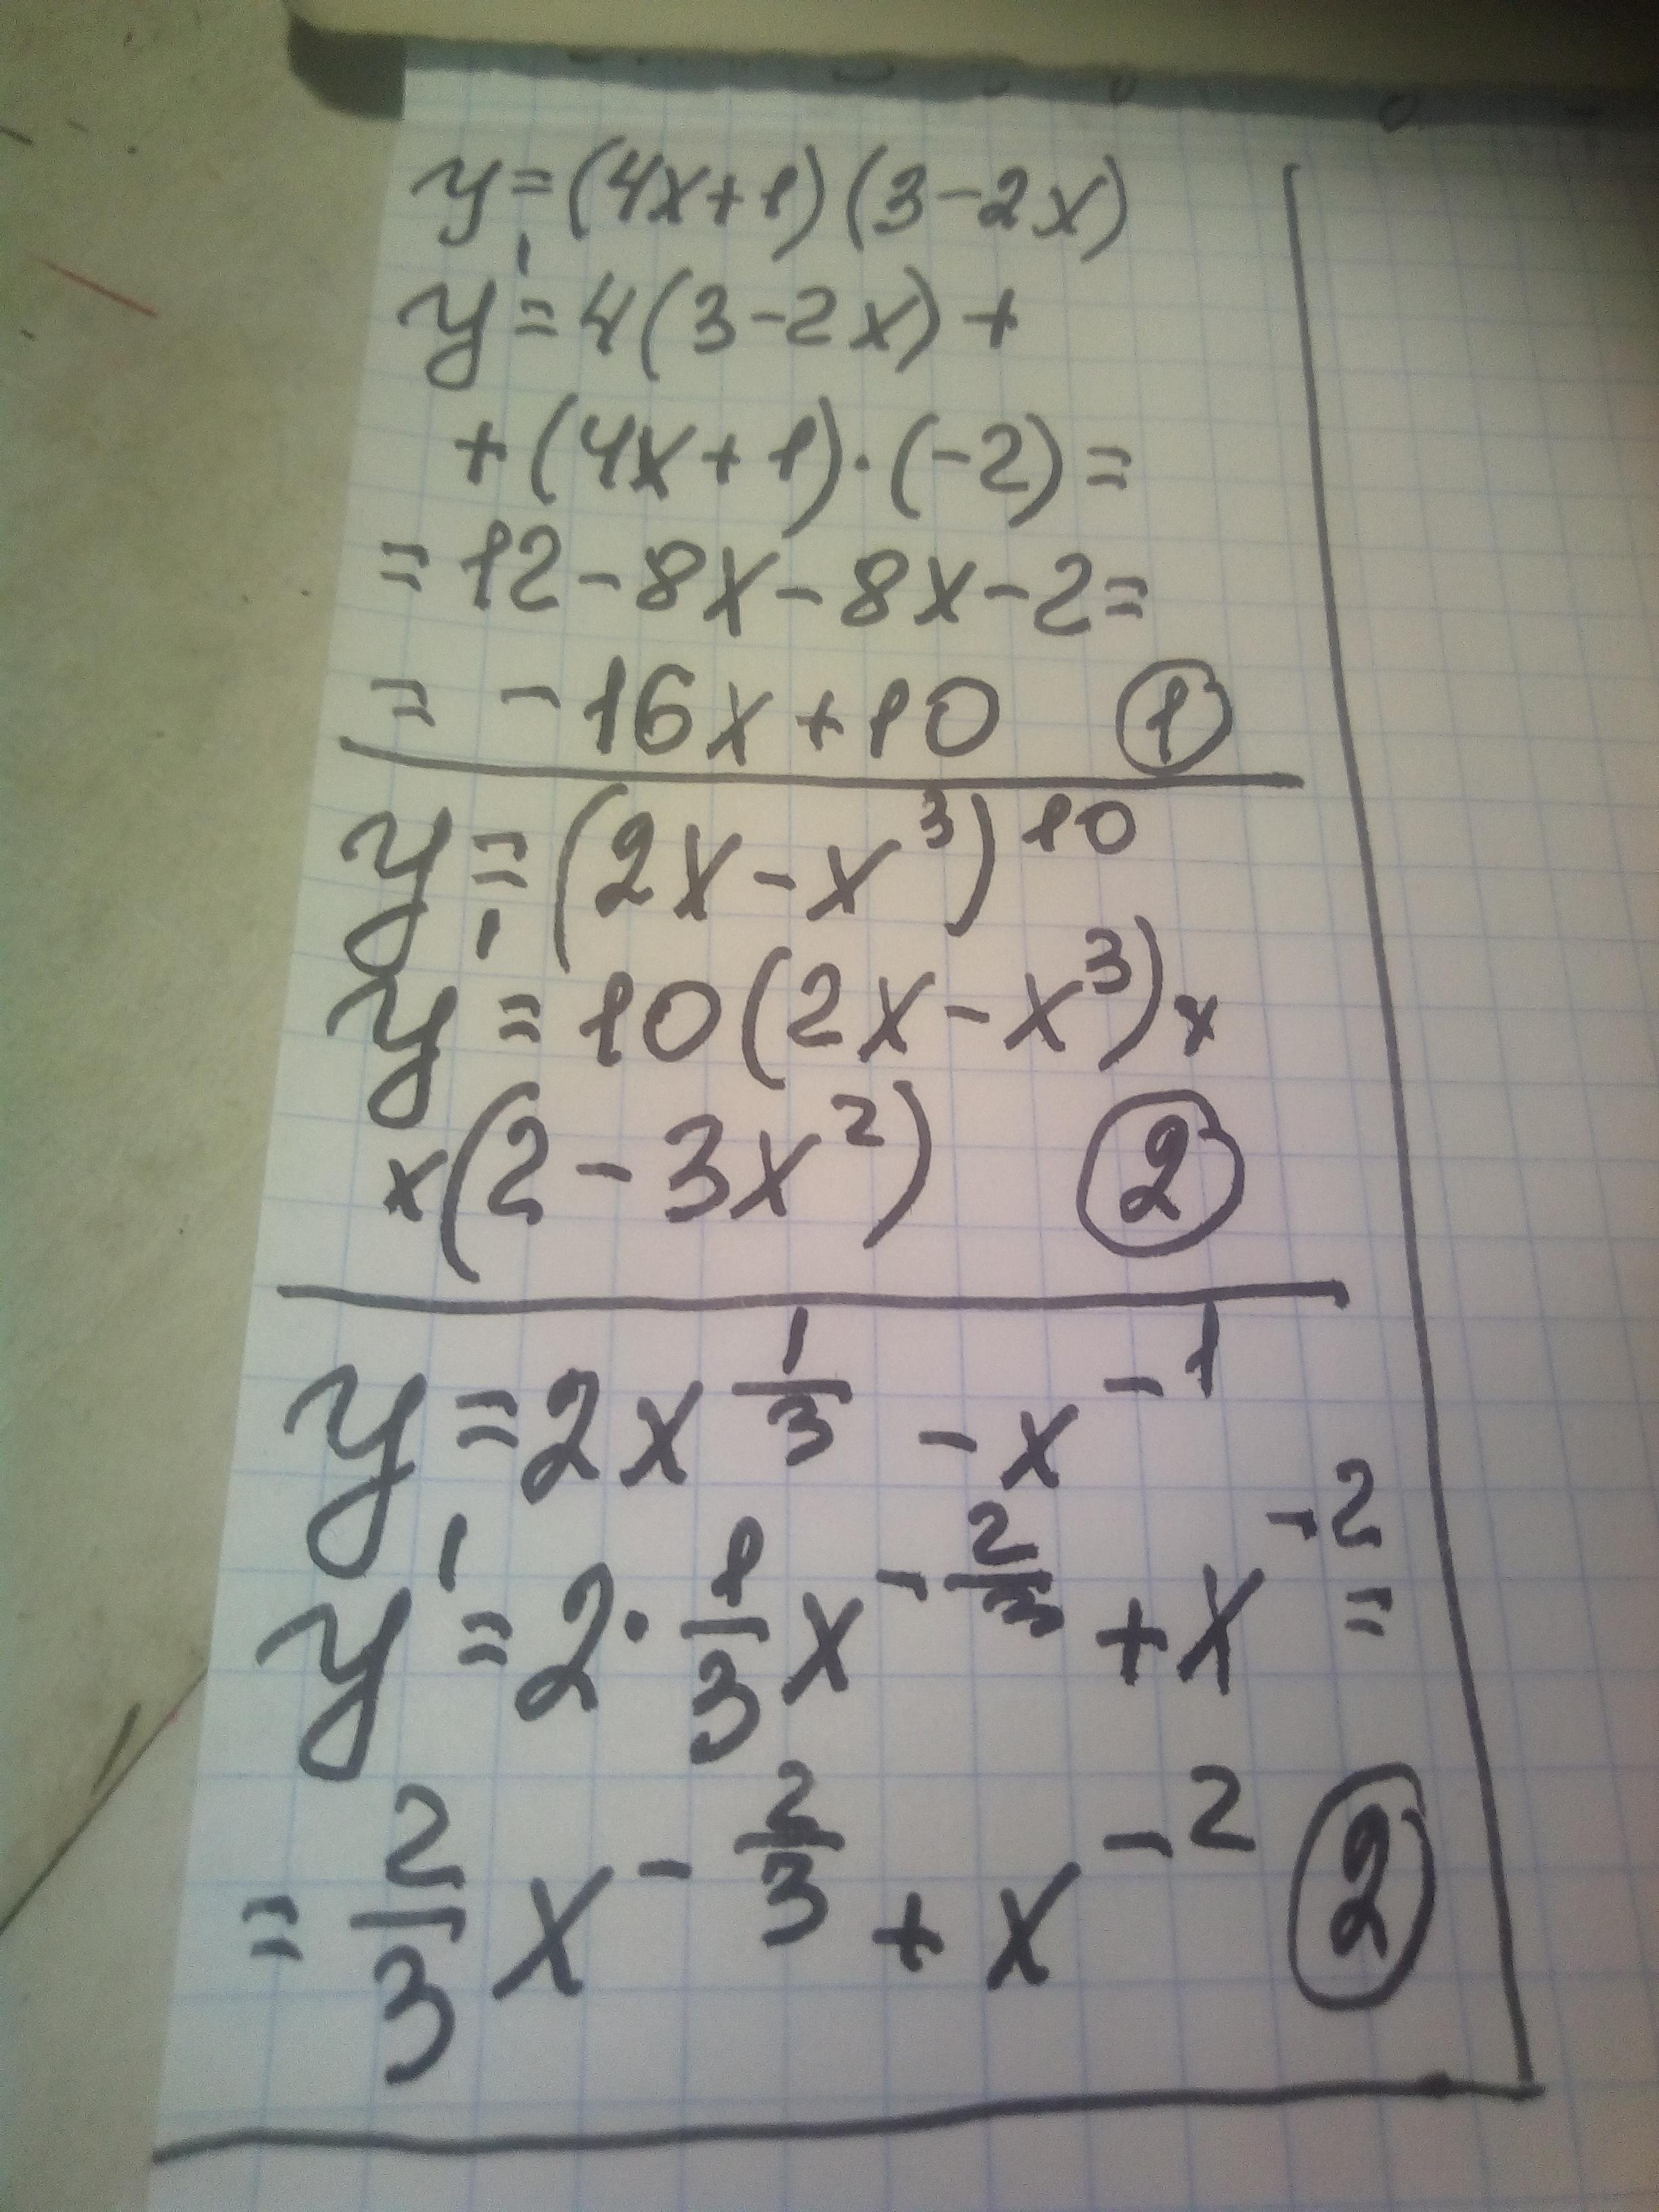 y=(4x+1)(3-2x)
y'=4(3-2x)+
+(4x+1)·(-2)=
=12-8x-8x-2=
=-16x+10 ①
y=(2x-x³)¹⁰
y'=10(2x-x³)×
×(2-3x²) ②
y=2x^(1/3)-x⁻¹
y'=2·1/3x^(-2/3)+x⁻²=
=2/3x^(-2/3)+x⁻² ②